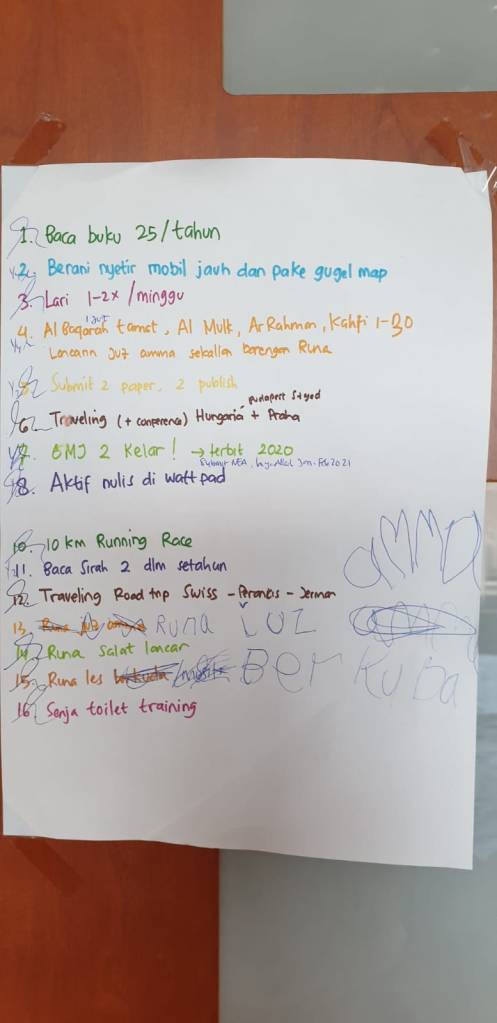 1. Baca buku 25/tahun
2. Berani nyetir mobil jauh dan pake gugel map
3. Lari 1-2x /minggu
4. Al Baqarah tamat, Al Mulk, Ar Rahman, Kahfi 1-30
1 juz
Lancarin Juz amma sekalian barengan Runa
Submit 2 paper, 2 publish
Budapest Szeged
6. Traveling (+ conference) Hungaria + Praha
7. BMJ 2 Kelar! → terbit 2020
Jan-Feb 2021
8. Aktif nulis di wattpad
10. 10 km Running Race
11. Baca Sirah 2 dlm setahun
12. Traveling Road trip Swiss - Perancis - Jerman
13. Runa JUZ amma
14. Runa Salat lancar
15. Runa les Berkuda
16. Senja toilet training